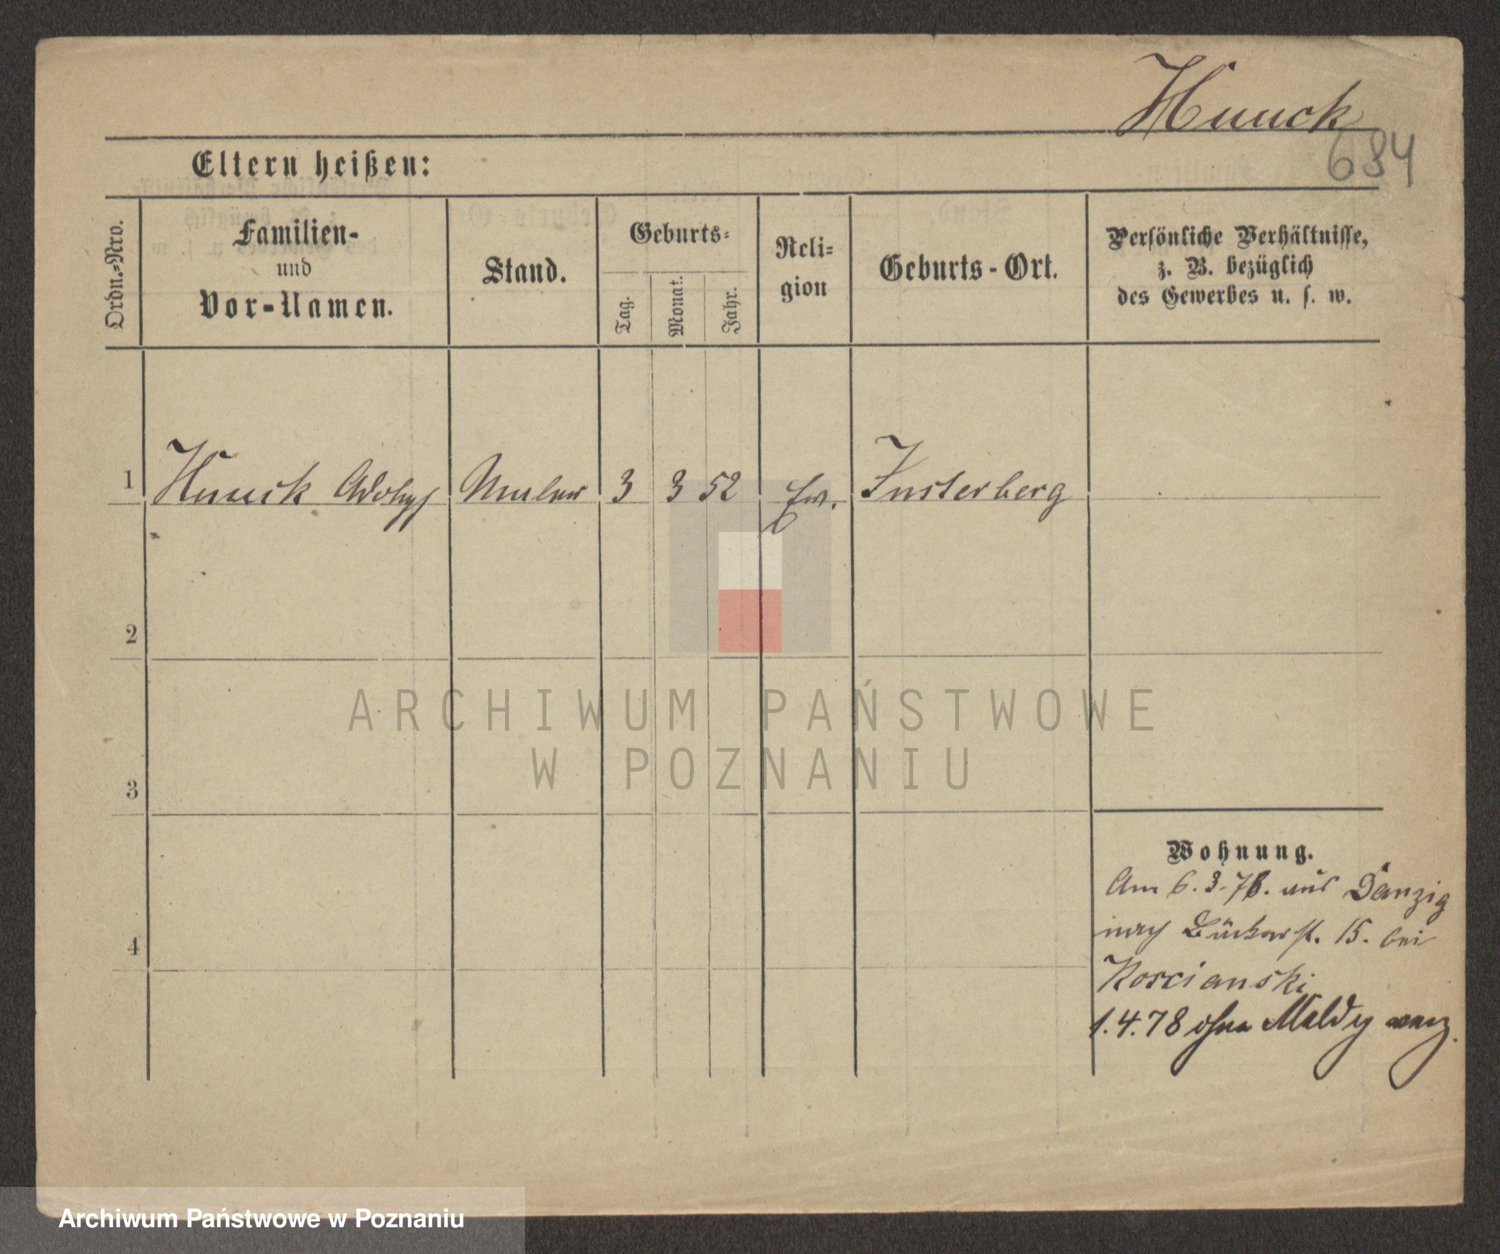 Huuck
684
Eltern heißen:
Ordn.-Nro.
Familien-
und
Vor-Namen.
Stand.
Geburts-
Tag.
Monat.
Jahr.
Reli-
gion
Geburts-Ort.
Persönliche Verhältnisse,
z. B. bezüglich
des Gewerbes u. s. w.
1 Huuck Adolph Maler 3 3 52 ev. Insterberg
2
3
4
Wohnung.
Am 6.3.78. aus Danzig
nach 15. bei
Koscianski
1.4.78 ohne Meldg
ARCHIWUM PAŃSTWOWE
W POZNANIU
Archiwum Państwowe w Poznaniu